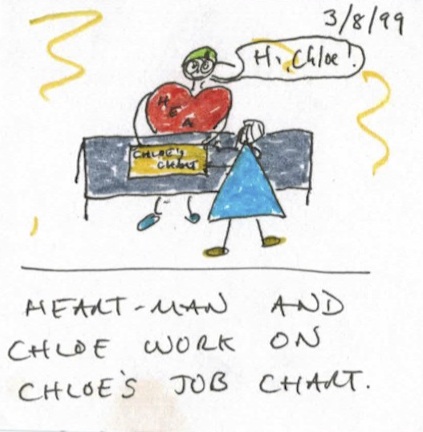 3/8/99
Hi, Chloe!
CHLOE'S
CHART
HEART-MAN AND
CHLOE WORK ON
CHLOE'S JOB CHART.